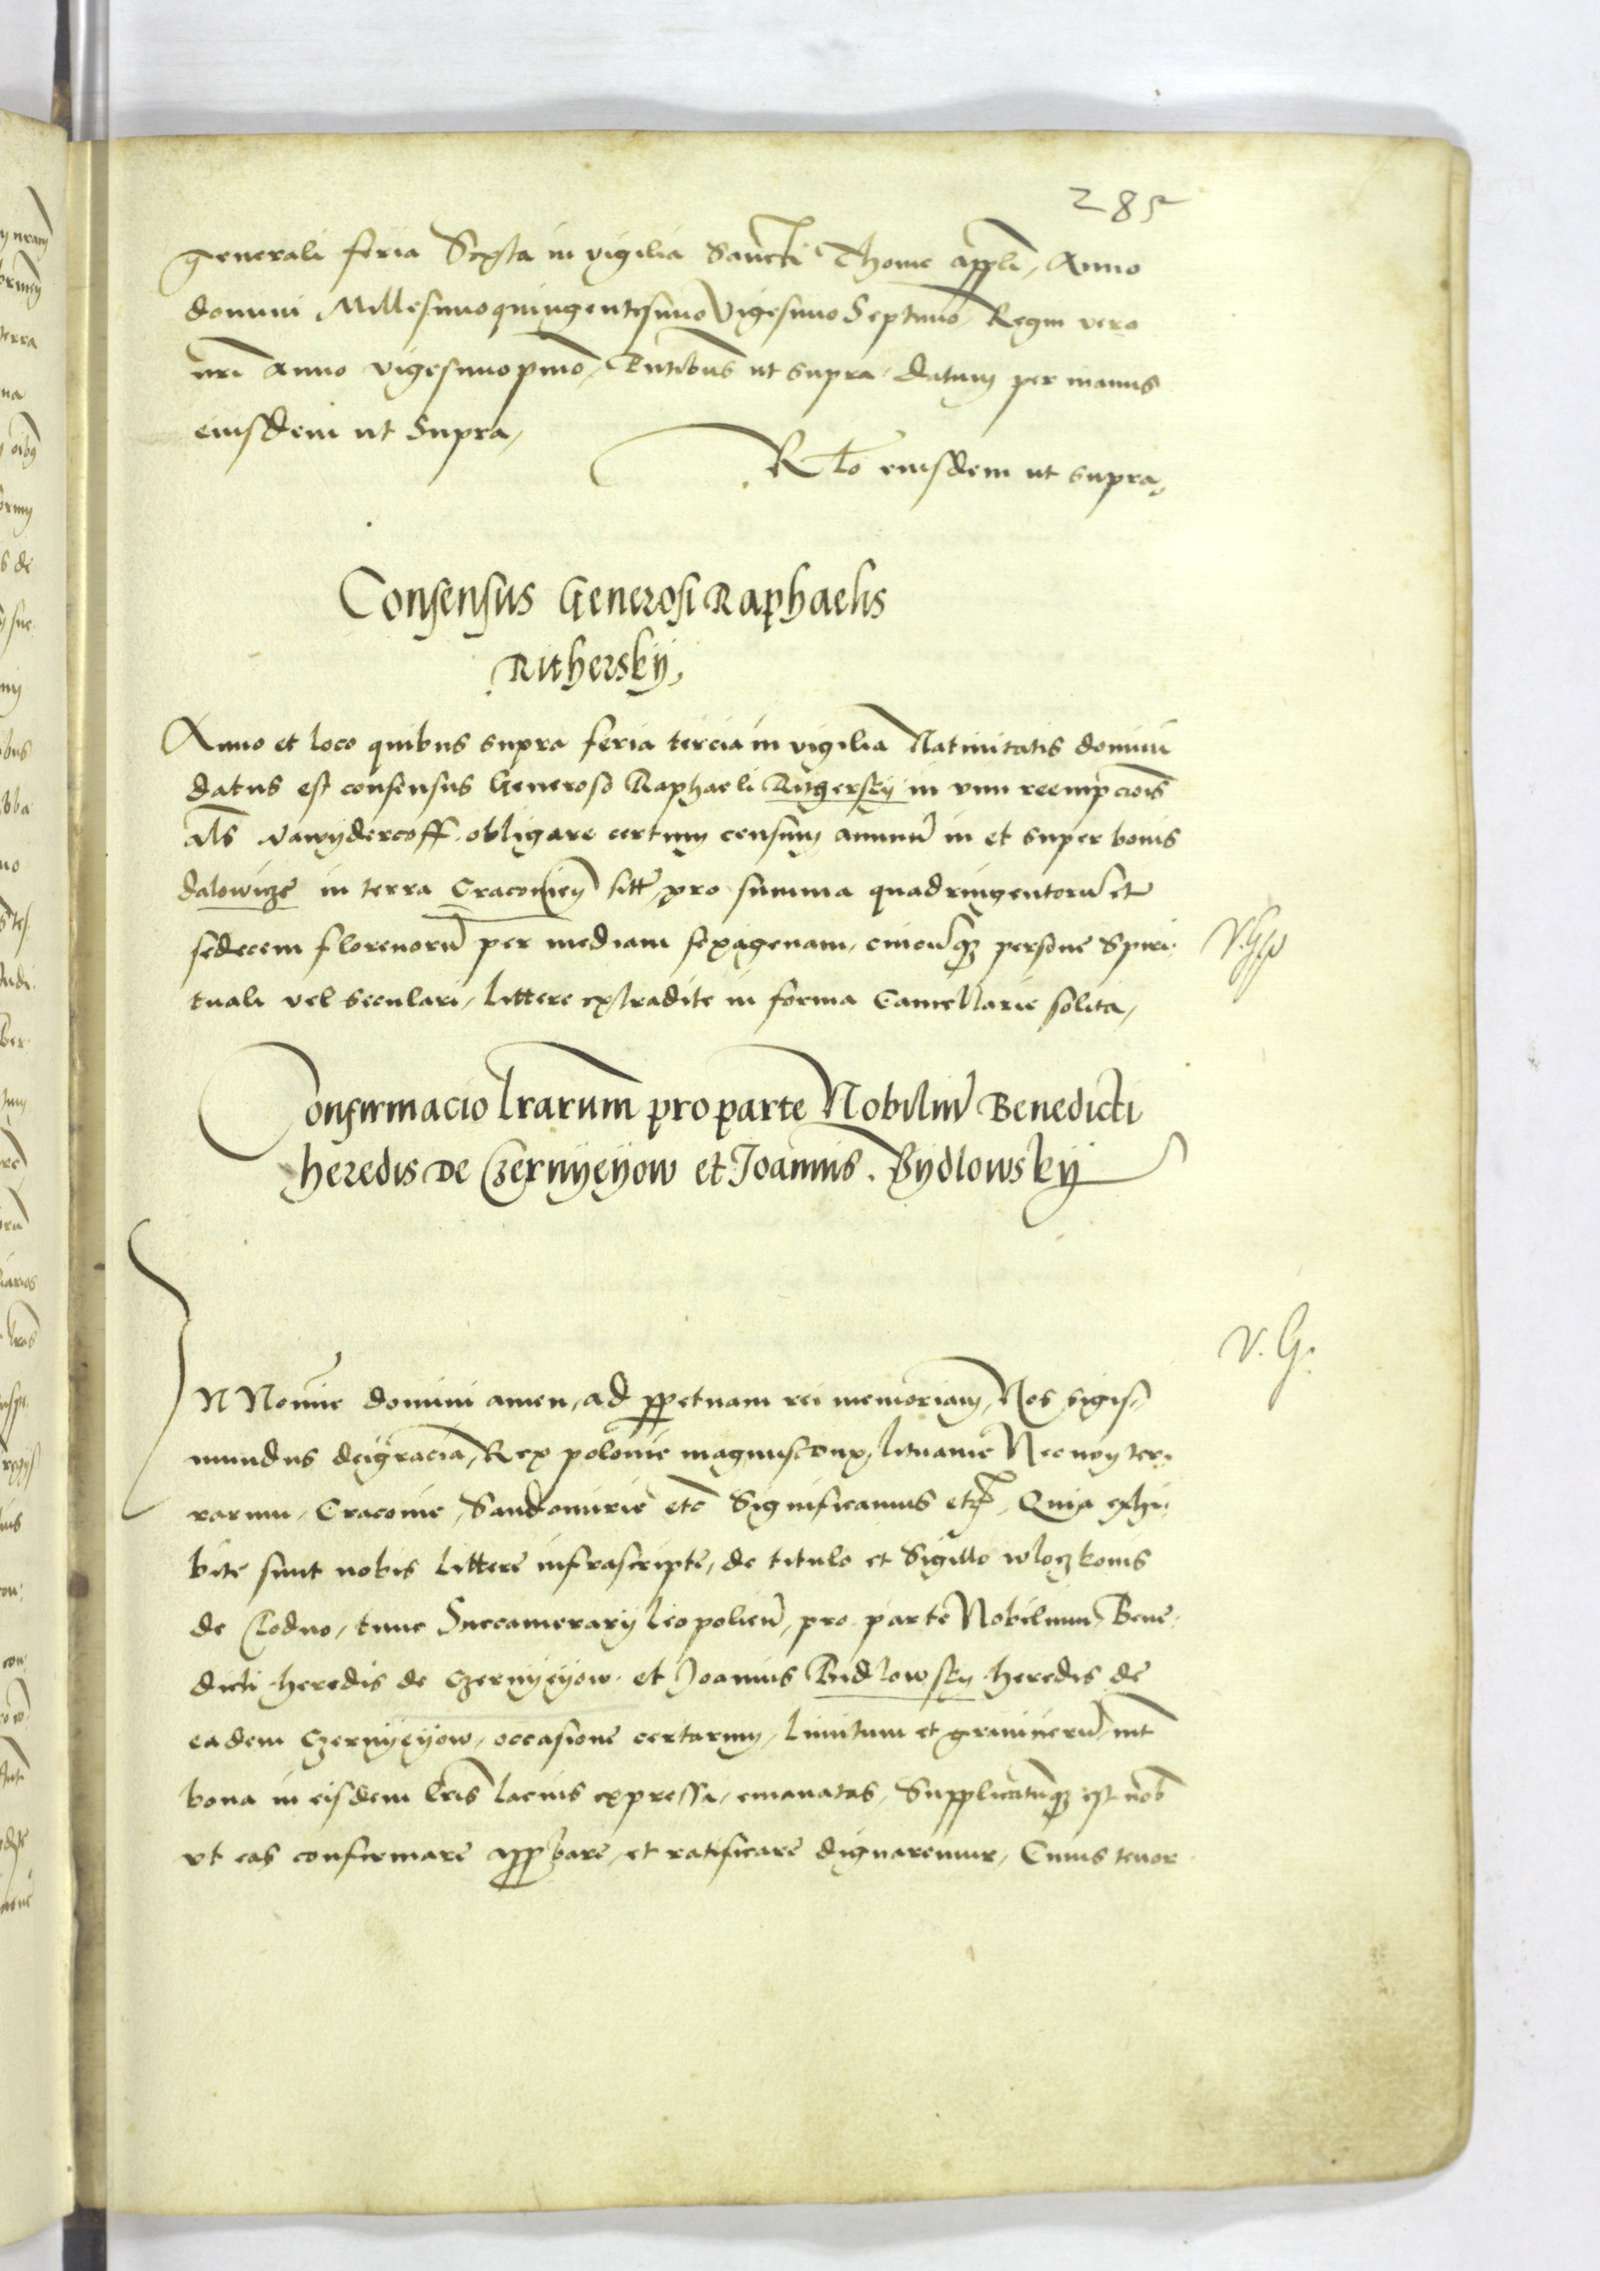 285
generali feria Sexta in vigilia Sancti Thome appli, Anno
domini Millesimoquingentesimo Vigesimo Septimo, Regni vero
nri Anno vigesimopmo, Pntibus ut supra datum per manus
eiusdem ut Supra,
Rlo eiusdem ut supra,
Consensus Generosi Raphaelis
Rithersky,
Anno et loco quibus supra feria tercia in vigilia Natiuitatis domini
datus est consensus Generoso Raphaeli Ritgersky in vim reempcionis
als nawydercoff obligare certum censum annuu in et super bonis
dalowicze in terra Cracouien sitt pro summa quadringentoru et
sedecem florenoru per mediam sexagenam, cuicuqz persone Spiri
tuali vel seculari, littere extradite in forma Cancellarie solita,
Confirmacio lrarum pro parte Nobiliu Benedicti
heredis de Czernyeyow et Joannis Bydlowsky
V. G.
IN Nomine domini amen, ad ppetuam rei memoriam, Nos Sigis
mundus dei gracia, Rex polonie magnus dux lituanie Necnon ter
rarum, Cracouie, Sandomirie etc Significamus etc, Quia exhi
bite sunt nobis littere infrascripte, de titulo et Sigillo wloczkonis
de Clodno, tunc Succamerary leopolien, pro parte Nobilium Bene
dicti heredis de Czernyeyow et Joannis Bidlowsky heredis de
eadem Czernyeyow, occasione certarum, limitum et granicieru int
bona in eisdem lris lacius expressa, emanatas, Supplicatuqz est nob
vt eas confirmare appbare, et ratificare dignaremur, Cuius tenor